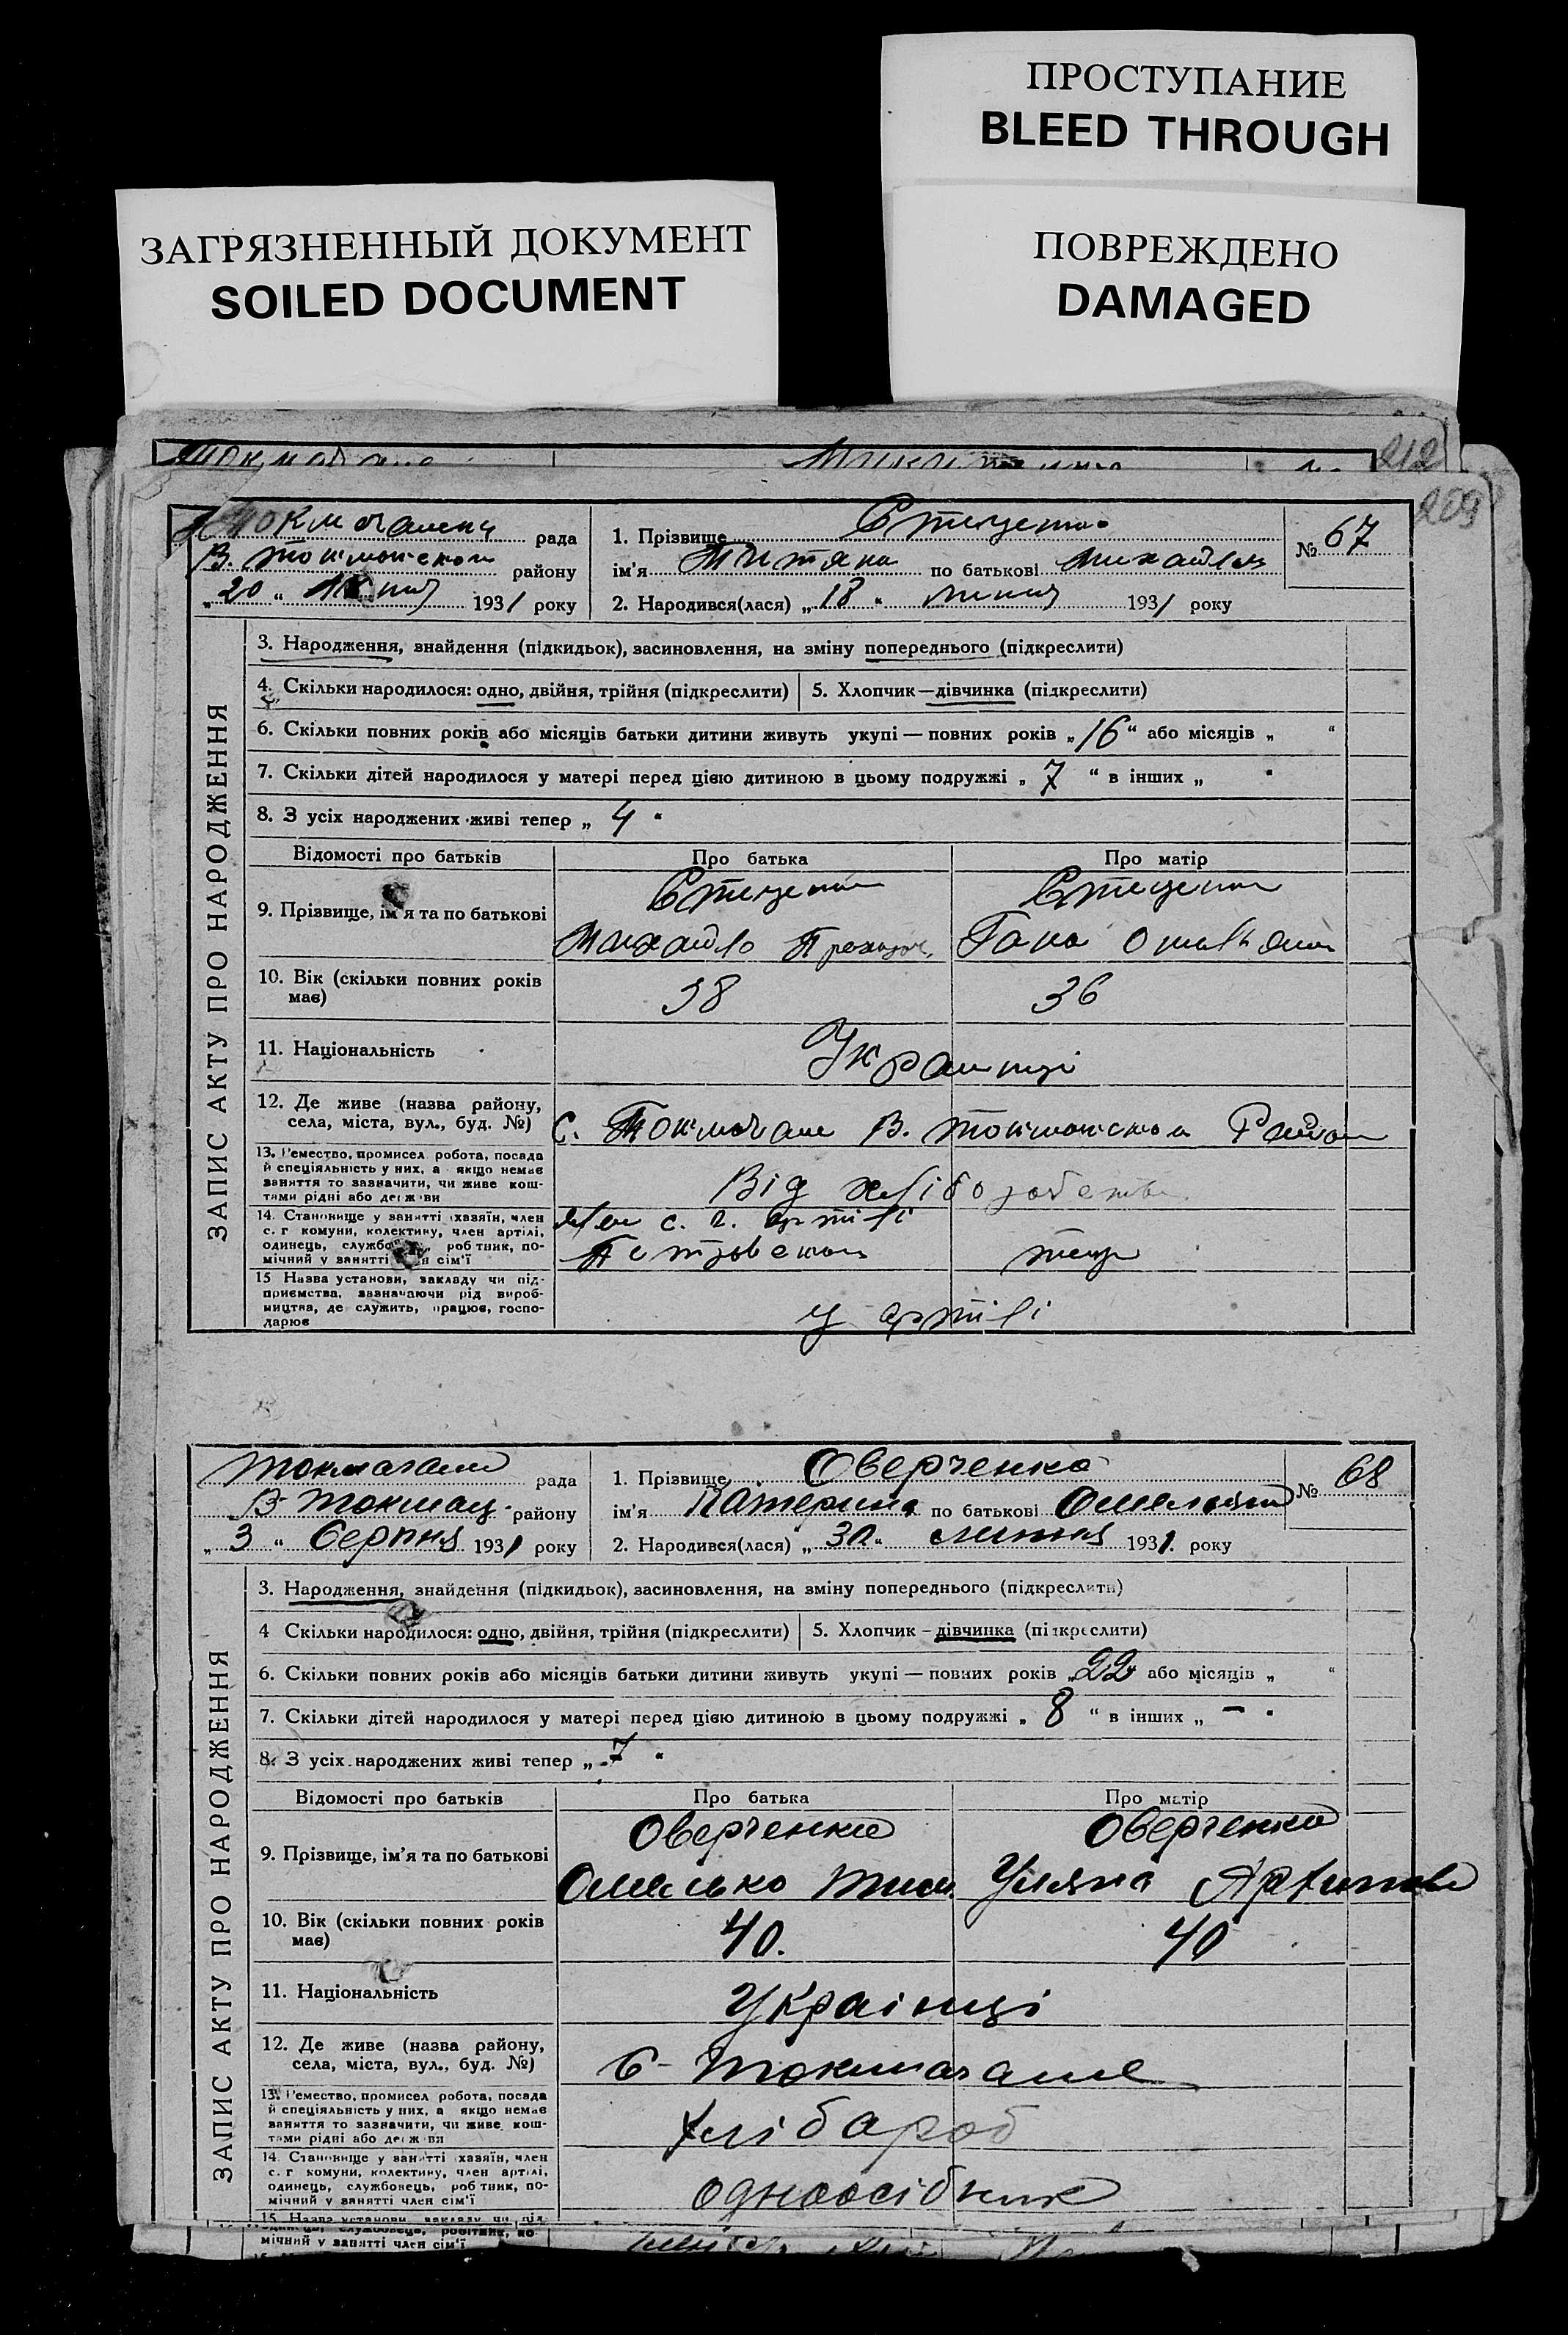 ПРОСТУПАНИЕ
BLEED THROUGH
ЗАГРЯЗНЕННЫЙ ДОКУМЕНТ
SOILED DOCUMENT
ПОВРЕЖДЕНО
DAMAGED
212
209
рада
В. района
"20" 1931 року
1. Прізвище Стеценко
№ 67
ім'я Титяна по батькові Михайлов
2. Народився(лася) "18" липня 1931 року
ЗАПИС АКТУ ПРО НАРОДЖЕННЯ
3. Народження, знайдення (підкидьок), засиновлення, на зміну попереднього (підкреслити)
4. Скільки народилося: одно, двійня, трійня (підкреслити)
5. Хлопчик—дівчинка (підкреслити)
6. Скільки повних років або місяців батьки дитини живуть укупі — повних років „16“ або місяців „ “
7. Скільки дітей народилося у матері перед цією дитиною в цьому подружжі „ 7 “ в інших „ “
8. З усіх народжених живі тепер „ 4 “
Відомості про батьків
Про батька
Про матір
9. Прізвище, ім'я та по батькові
Стеценко
Михайло
Стеценко
Гана
10. Вік (скільки повних років має)
38
36
11. Національність
Украинці
12. Де живе (назва району, села, міста, вул., буд. №)
С. Токмачане В. Район
13. Ремество, промисел робота, посада й спеціяльність у них, а якщо немає заняття то зазначити, чи живе коштами рідні або держави
Від
14. Становище у занятті хазяїн, член с. г комуни, колективу, член артілі, одинець, службовець, робітник, помічний у занятті член сім'ї
с. г. артілі
15 Назва установи, закладу чи підприємства, зазначаючи рід виробництва, де служить, працює, господарює
у артілі
рада
В- Токмац. району
"3" Серпня 1931 року
1. Прізвище Оверченко
№ 68
ім'я Катерина по батькові
2. Народився(лася) "30" липня 1931. року
ЗАПИС АКТУ ПРО НАРОДЖЕННЯ
3. Народження, знайдення (підкидьок), засиновлення, на зміну попереднього (підкреслити)
4 Скільки народилося: одно, двійня, трійня (підкреслити)
5. Хлопчик – дівчинка (підкреслити)
6. Скільки повних років або місяців батьки дитини живуть укупі — повних років „22“ або місяців „ “
7. Скільки дітей народилося у матері перед цією дитиною в цьому подружжі „ 8 “ в інших „ – “
8. З усіх народжених живі тепер „ 7 “
Відомості про батьків
Про батька
Про матір
9. Прізвище, ім'я та по батькові
Оверченко
Омелько Тим.
Оверченко
Уляна
10. Вік (скільки повних років має)
40.
40
11. Національність
Українці
12. Де живе (назва району, села, міста, вул., буд. №)
С- Токмачане
13. Ремество, промисел робота, посада й спеціяльність у них, а якщо немає заняття то зазначити, чи живе коштами рідні або держави
хлібароб
14. Становище у занятті хазяїн, член с. г комуни, колективу, член артілі, одинець, службовець, робітник, помічний у занятті член сім'ї
одноосібник
15. Назва установи, закладу чи під-
службовець, робітник, по-
мічний у занятті член сім'ї